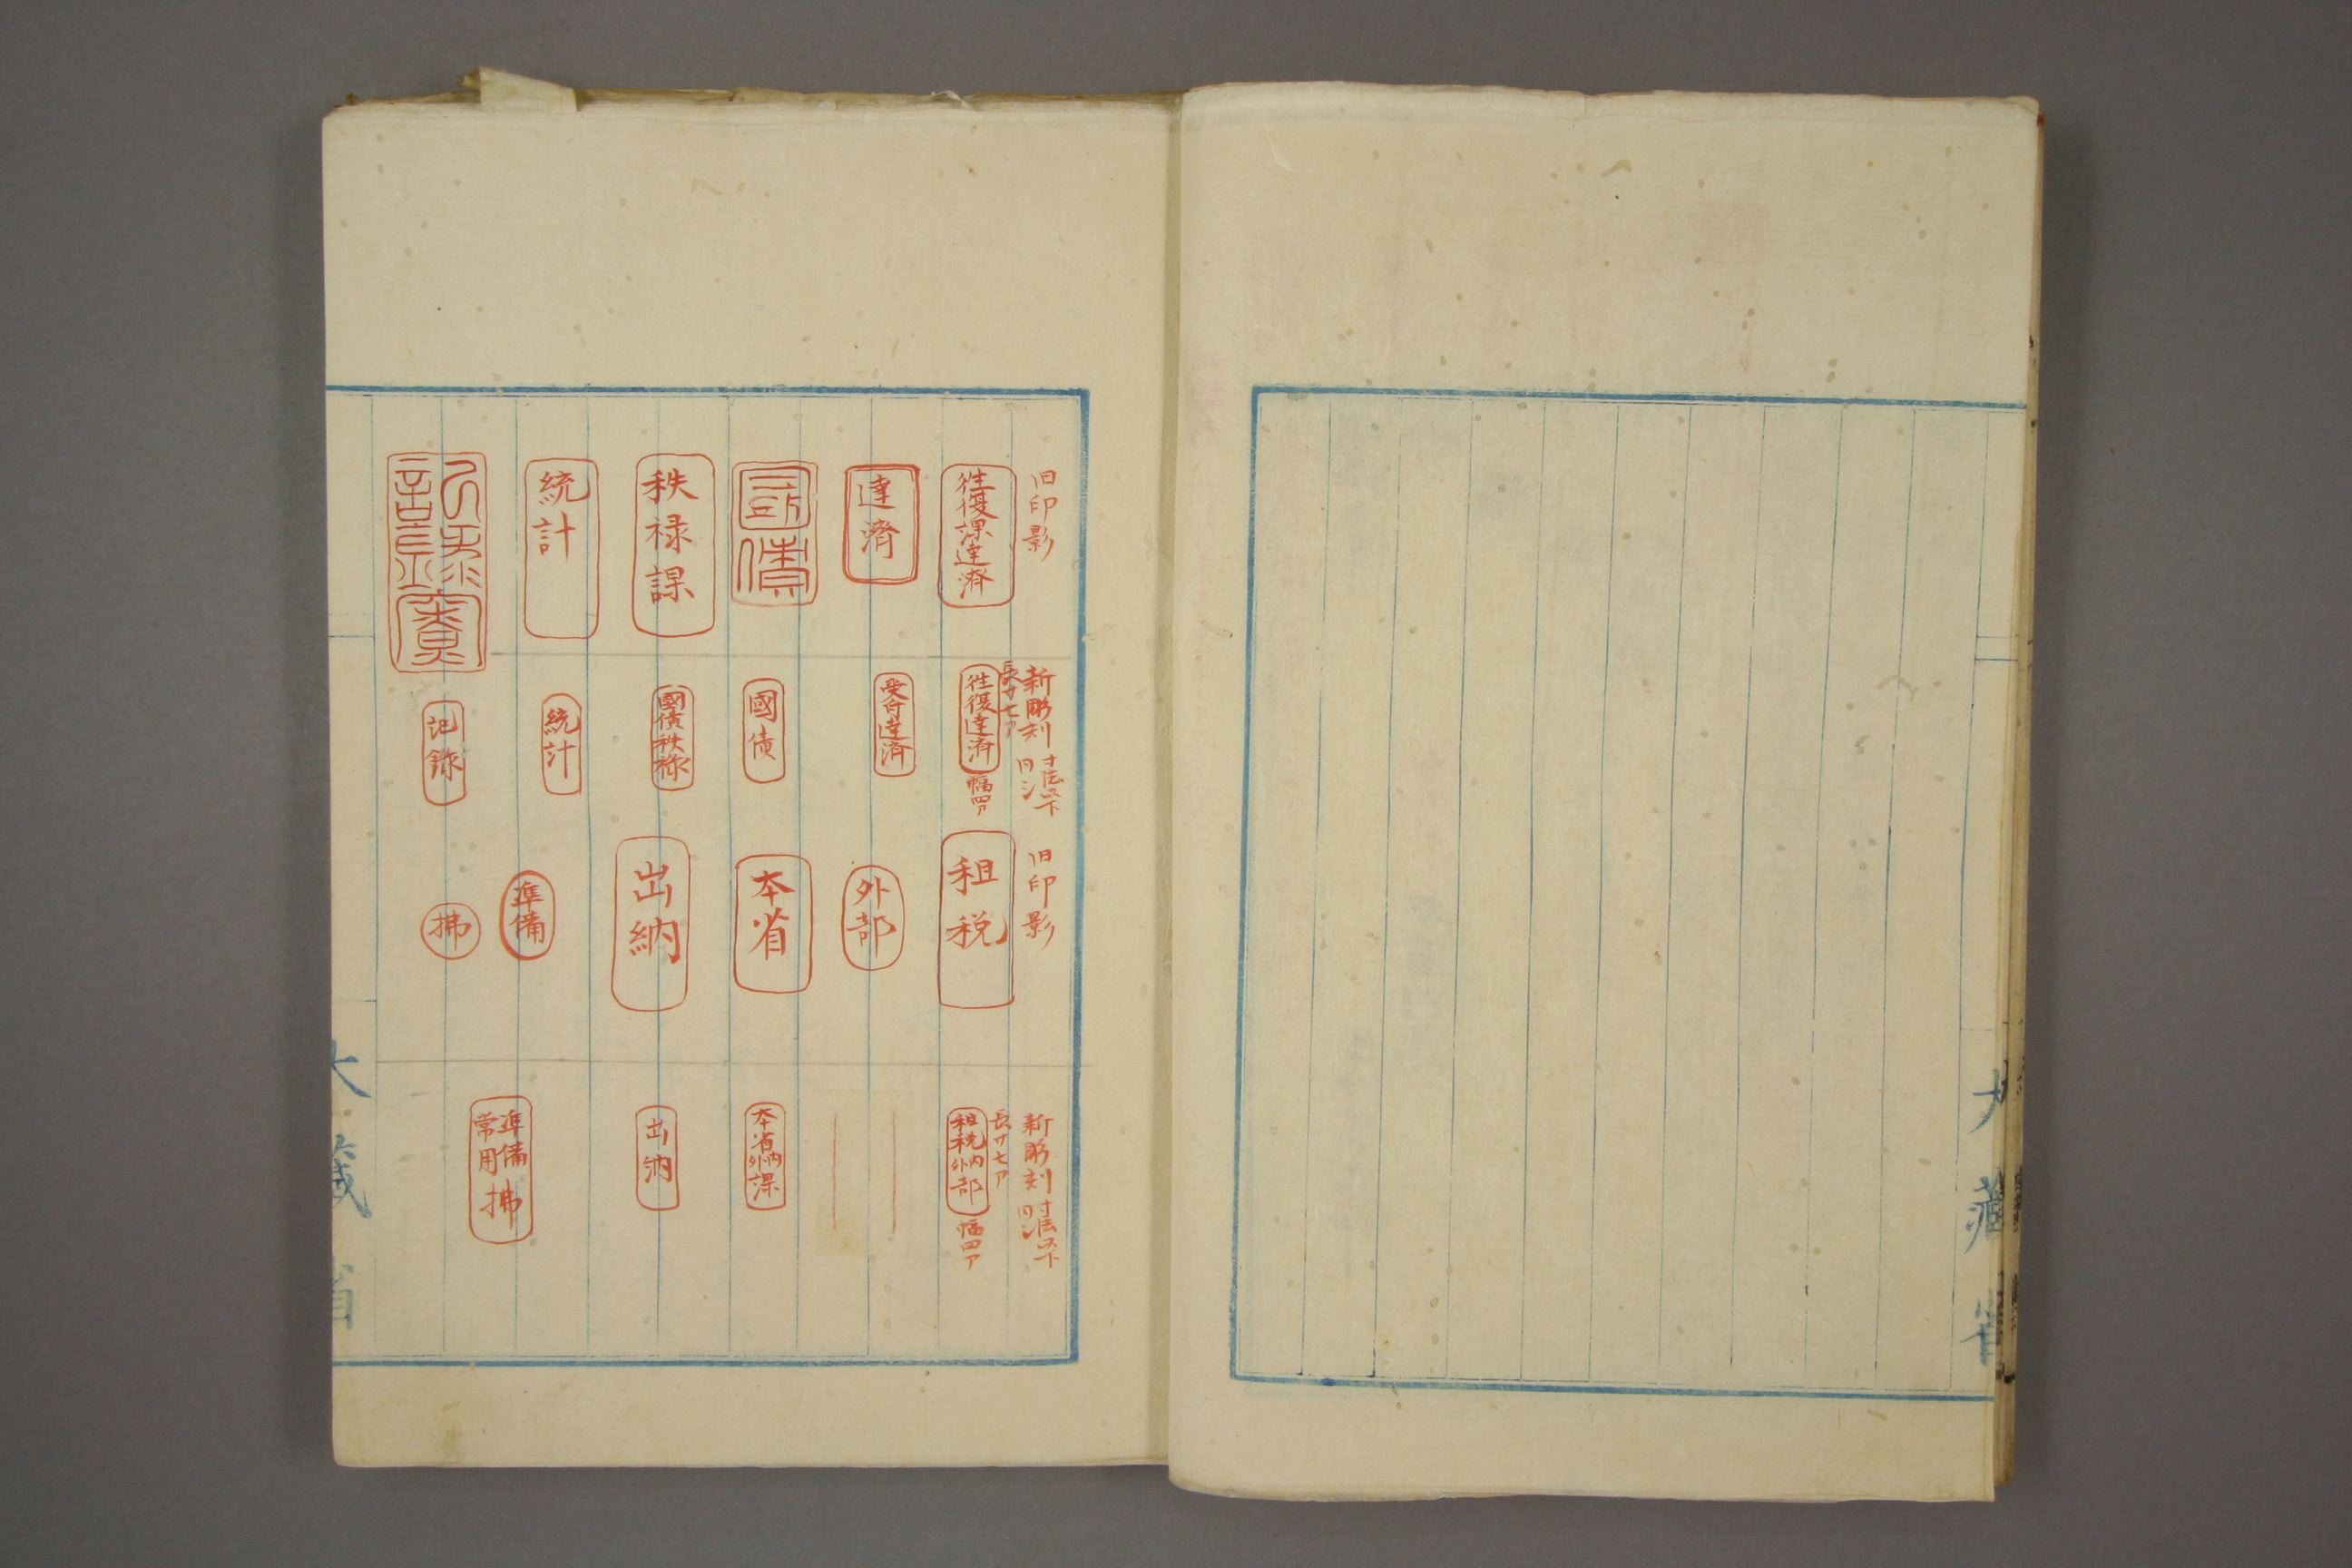 大藏省
旧印影
往復課達済
達済
國債
秩禄課
統計
新彫刻
寸法以下同シ
長サ七分
往復達済
幅四分
受付達済
國債
國債秩禄
統計
記録
旧印影
租税
外部
本省
出納
準備
拂
新彫刻
寸法以下同シ
長サ七分
租税内外部
幅四分
本省内外課
出納
準備常用拂
大藏省